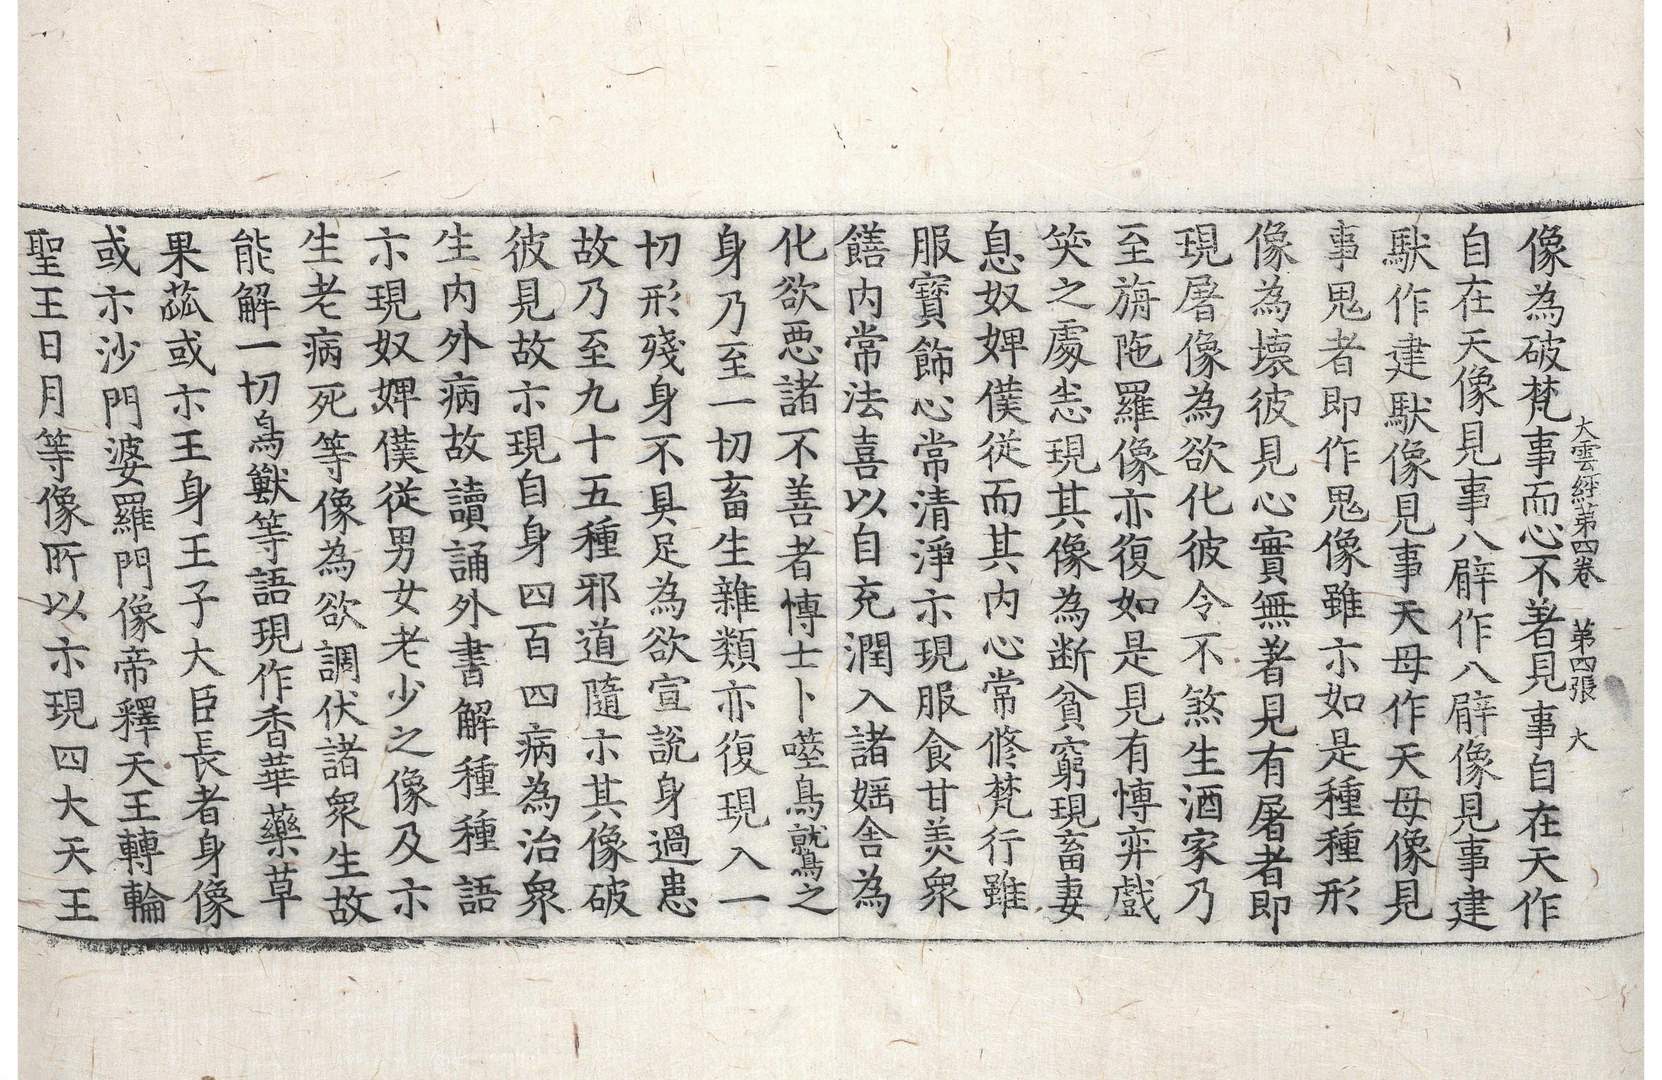 大雲經第四卷　第四張　大
像為破梵事而心不著見事自在天作
自在天像見事八臂作八臂像見事建
馱作建馱像見事天母作天母像見
事鬼者即作鬼像雖示如是種種形
像為壞彼見心實無著見有屠者即
現屠像為欲化彼令不煞生酒家乃
至旃陁羅像亦復如是見有博弈戲
笑之處恙現其像為断貧窮現畜妻
息奴婢僕從而其內心常修梵行雖
服寶飾心常清淨示現服食甘羙衆
饍內常法喜以自充潤入諸婬舍為
化欲惡諸不善者博士卜噬鳥鷲之
身乃至一切畜生雜類亦復現入一
切形殘身不具足為欲宣說身過患
故乃至九十五種邪道隨示其像破
彼見故示現自身四百四病為治衆
生內外病故讀誦外書解種種語
示現奴婢僕從男女老少之像及示
生老病死等像為欲調伏諸衆生故
能解一切鳥獸等語現作香華藥草
果蓏或示王身王子大臣長者身像
或示沙門婆羅門像帝釋天王轉輪
聖王日月等像所以示現四大天王